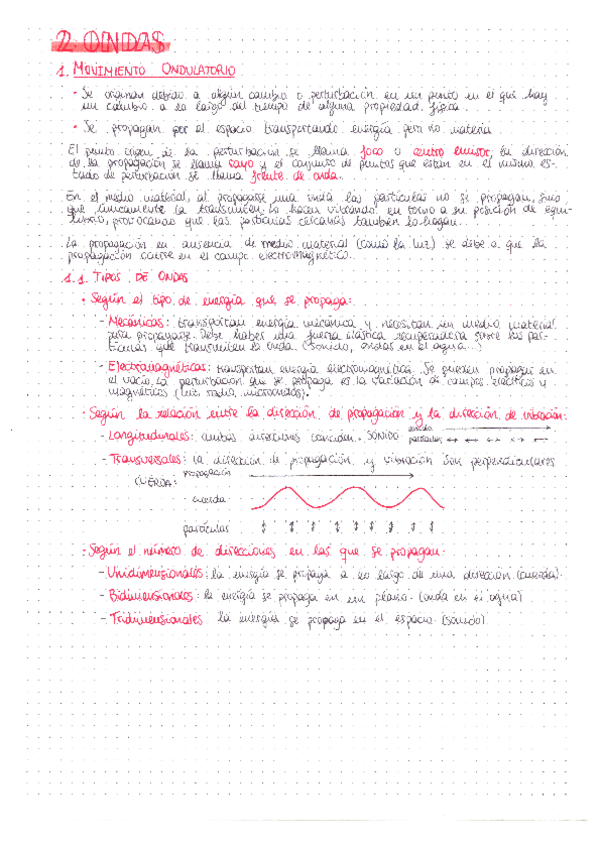 2. ONDAS
1. MOVIMIENTO ONDULATORIO
• Se originan debido a algún cambio o perturbación en un punto en el que hay
un cambio a lo largo del tiempo de alguna propiedad física
• Se propagan por el espacio transportando energía pero no materia
El punto origen de la perturbación se llama foco o centro emisor, la dirección
de la propagación se llama rayo y el conjunto de puntos que están en el mismo es-
tado de perturbación se llama frente de onda.
En el medio material, al propagarse una onda las partículas no se propagan, sino
que únicamente la transmiten. Lo hacen vibrando en torno a su posición de equi-
librio, provocando que las partículas cercanas también lo hagan.
La propagación en ausencia de medio material (como la luz) se debe a que la
propagación ocurre en el campo electromagnético.
1.1. TIPOS DE ONDAS
• Según el tipo de energía que se propaga:
- Mecánicas: transportan energía mecánica y necesitan un medio material
para propagarse. Debe haber una fuerza elástica recuperadora sobre las par-
tículas que transmiten la onda (sonido, ondas en el agua...)
- Electromagnéticas: transportan energía electromagnética. Se pueden propagar en
el vacío. La perturbación que se propaga es la variación de campos eléctricos y
magnéticos (luz, radio, microondas).
• Según la relación entre la dirección de propagación y la dirección de vibración:
- Longitudinales: ambas direcciones coinciden. SONIDO sonido
partículas
- Transversales: la dirección de propagación y vibración son perpendiculares
propagación
CUERDA:
cuerda
partículas
• Según el número de direcciones en las que se propagan
- Unidimensionales: la energía se propaga a lo largo de una dirección (cuerda).
- Bidimensionales: la energía se propaga en un plano (onda en el agua)
- Tridimensionales la energía se propaga en el espacio (sonido)